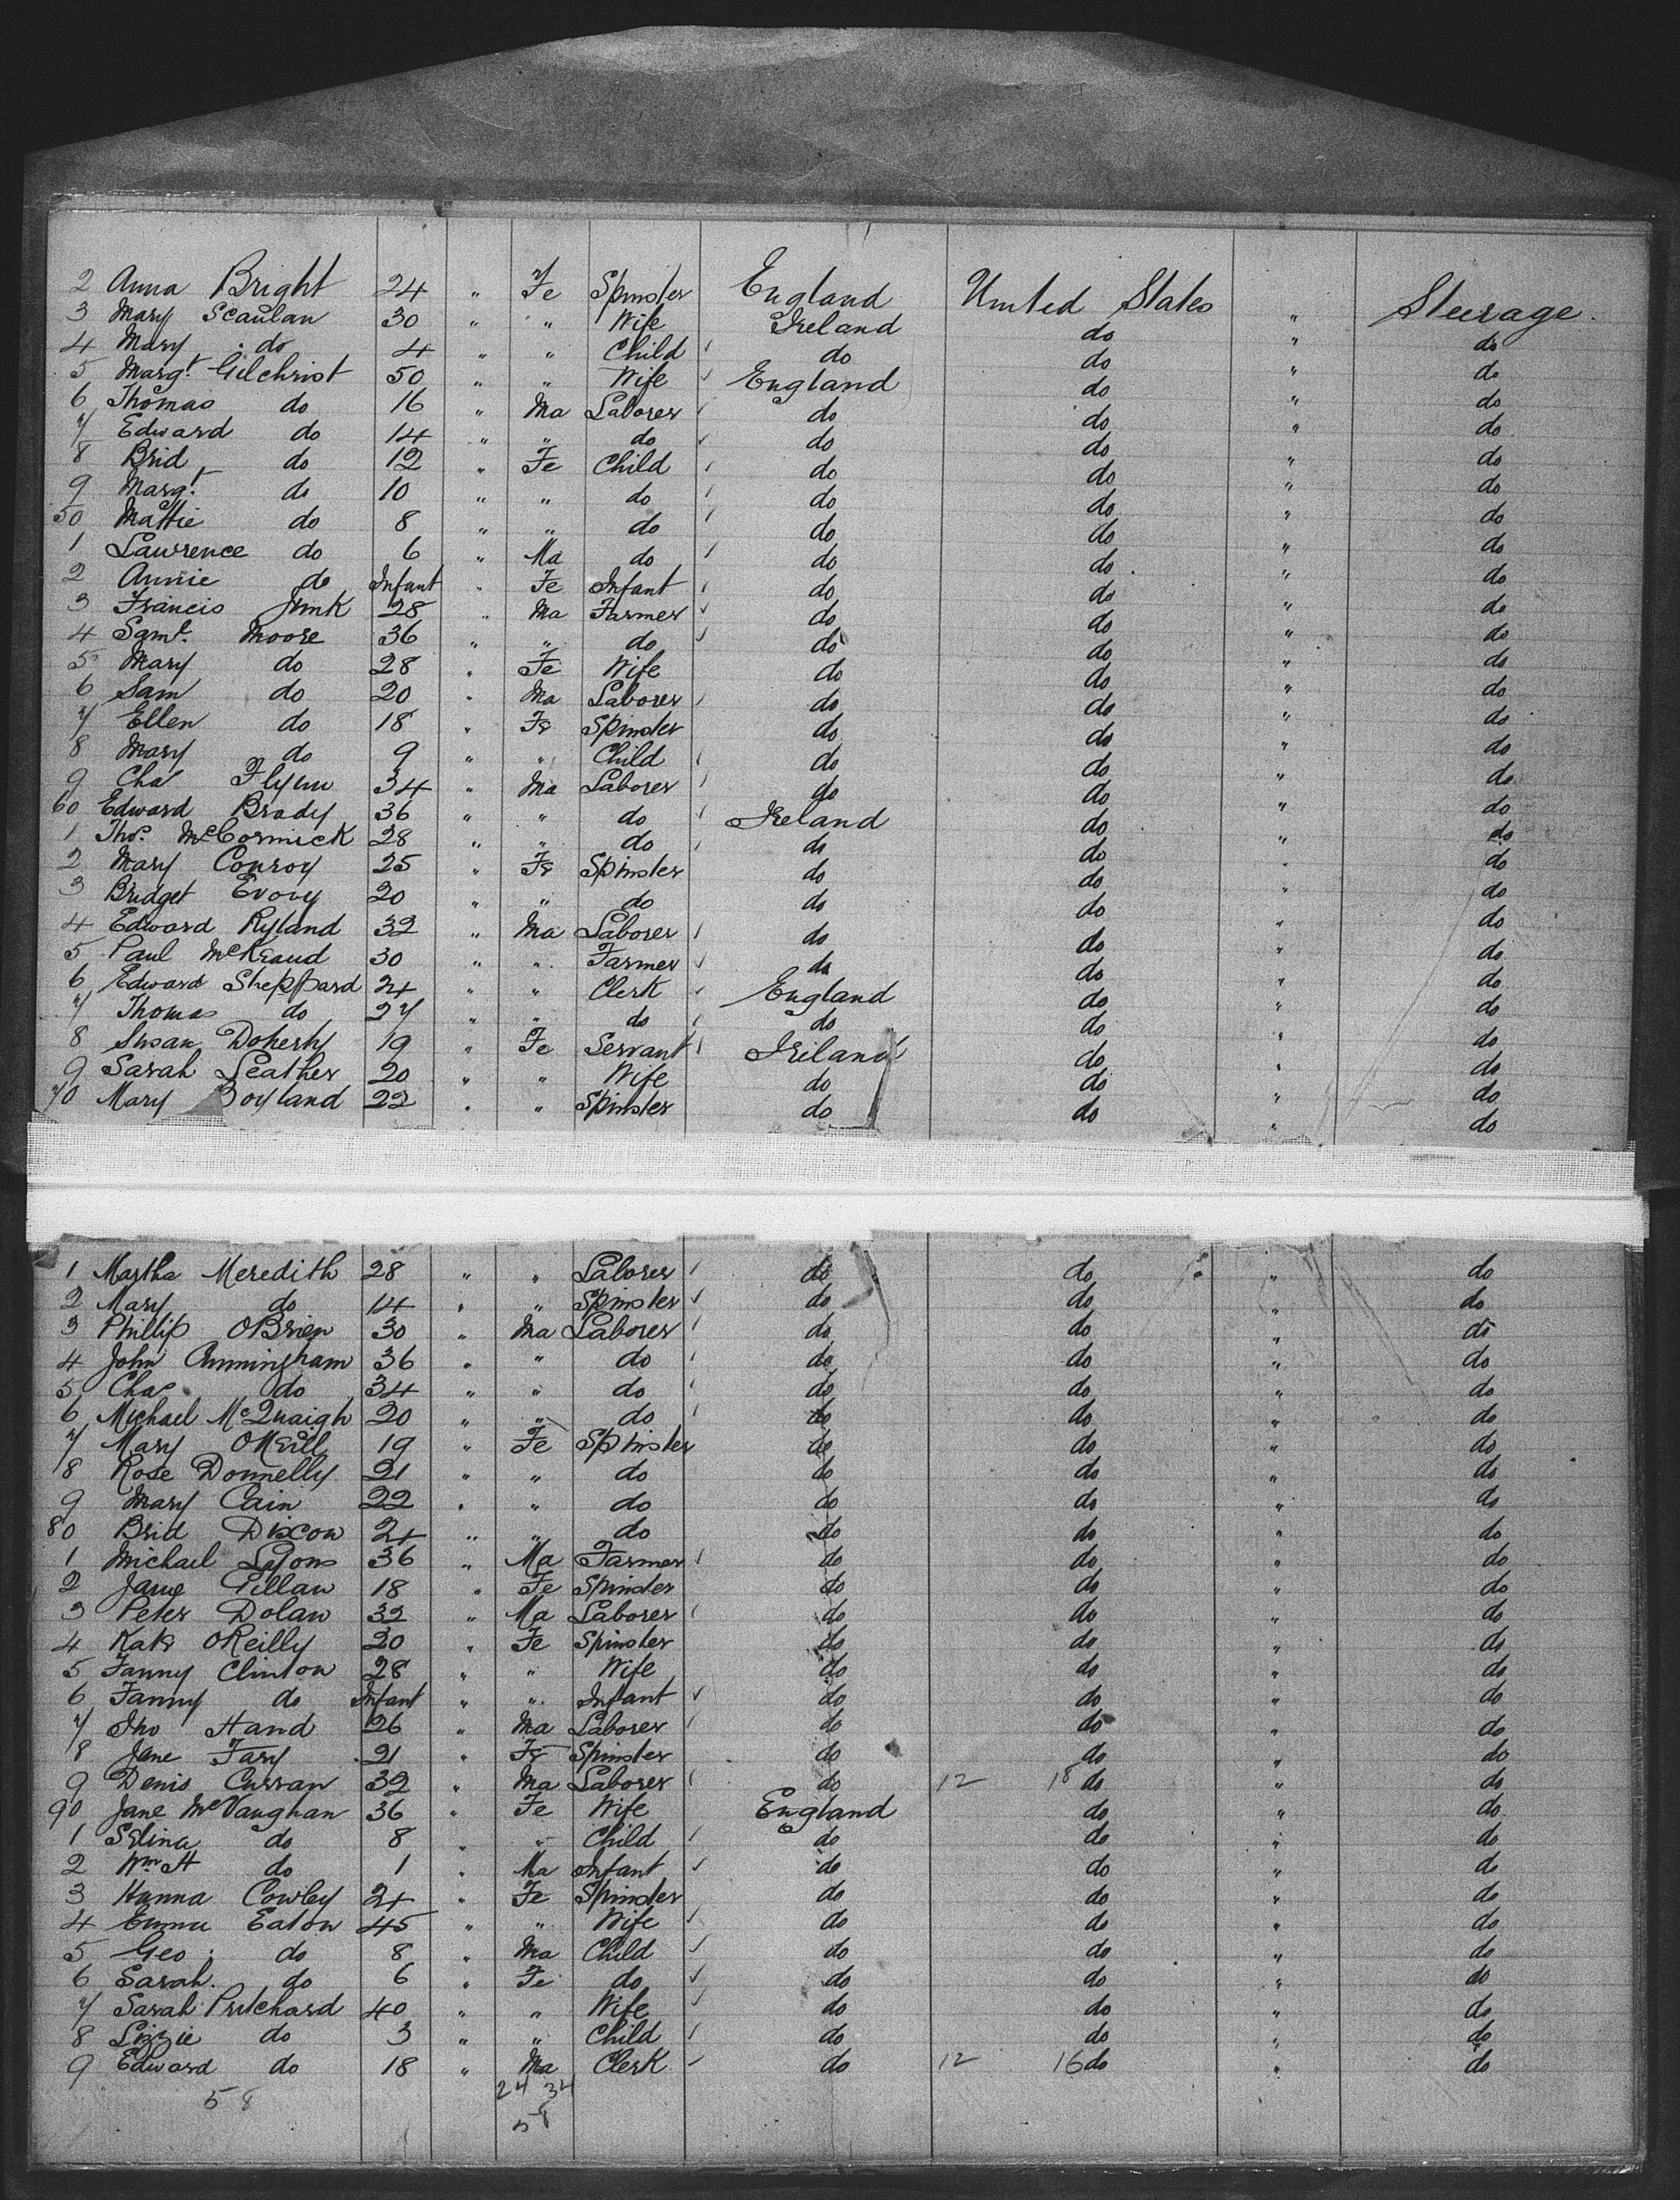 2 Anna Bright 24 " Fe Spinster England United States " Steerage.
3 Mary Scanlan 30 " " Wife Ireland do " do
4 Mary do 4 " " Child do do " do
5 Margt. Gilchrist 50 " " Wife England do " do
6 Thomas do 16 " Ma Laborer do do " do
7 Edward do 14 " " do do do " do
8 Brid do 12 " Fe Child do do " do
9 Margt. do 10 " " do do do " do
50 Mattie do 8 " " do do do " do
1 Lawrence do 6 " Ma do do do " do
2 Annie do Infant " Fe Infant do do " do
3 Francis 28 " Ma Farmer do do " do
4 Saml. Moore 36 " " do do do " do
5 Mary do 28 " Fe Wife do do " do
6 Sam do 20 " Ma Laborer do do " do
7 Ellen do 18 " Fe Spinster do do " do
8 Mary do 9 " " Child do do " do
9 Chas Flynn 34 " Ma Laborer do do " do
60 Edward Brady 36 " " do Ireland do " do
1 Thos. McCormick 28 " " do do do " do
2 Mary Conroy 25 " Fe Spinster do do " do
3 Bridget Evoy 20 " " do do do " do
4 Edward Ryland 32 " Ma Laborer do do " do
5 Paul 30 " " Farmer do do " do
6 Edward Sheppard 24 " " Clerk England do " do
7 Thomas do 27 " " do do do " do
8 Susan Doherty 19 " Fe Servant Ireland do " do
9 Sarah Leather 20 " " Wife do do " do
70 Mary Boyland 22 " " Spinster do do " do
1 Martha Meredith 28 " " Laborer do do " do
2 Mary do 14 " " Spinster do do " do
3 Phillip OBrien 30 " Ma Laborer do do " do
4 John Cunningham 36 " " do do do " do
5 Chas do 34 " " do do do " do
6 Michael McQuaigh 20 " " do do do " do
7 Mary ONeill 19 " Fe Spinster do do " do
8 Rose Donnelly 21 " " do do do " do
9 Mary Cain 22 " " do do do " do
80 Brid Dixon 24 " " do do do " do
1 Michael Lyons 36 " Ma Farmer do do " do
2 Jane Gillan 18 " Fe Spinster do do " do
3 Peter Dolan 32 " Ma Laborer do do " do
4 Kate OReilly 20 " Fe Spinster do do " do
5 Fanny Clinton 28 " " Wife do do " do
6 Fanny do Infant " " Infant do do " do
7 Jno Hand 26 " Ma Laborer do do " do
8 Jane Fary 21 " Fe Spinster do do " do
9 Denis Curran 32 " Ma Laborer do 12 18 do " do
90 Jane McVaughan 36 " Fe Wife England do " do
1 Selina do 8 " " Child do do " do
2 Wm H do 1 " Ma Infant do do " do
3 Hanna Cowley 24 " Fe Spinster do do " do
4 Emma Eaton 45 " " Wife do do " do
5 Geo. do 8 " Ma Child do do " do
6 Sarah. do 6 " Fe do do do " do
7 Sarah Pritchard 40 " " Wife do do " do
8 Lizzie do 3 " " Child do do " do
9 Edward do 18 " Ma Clerk do 12 16 do " do
58 24 34
58